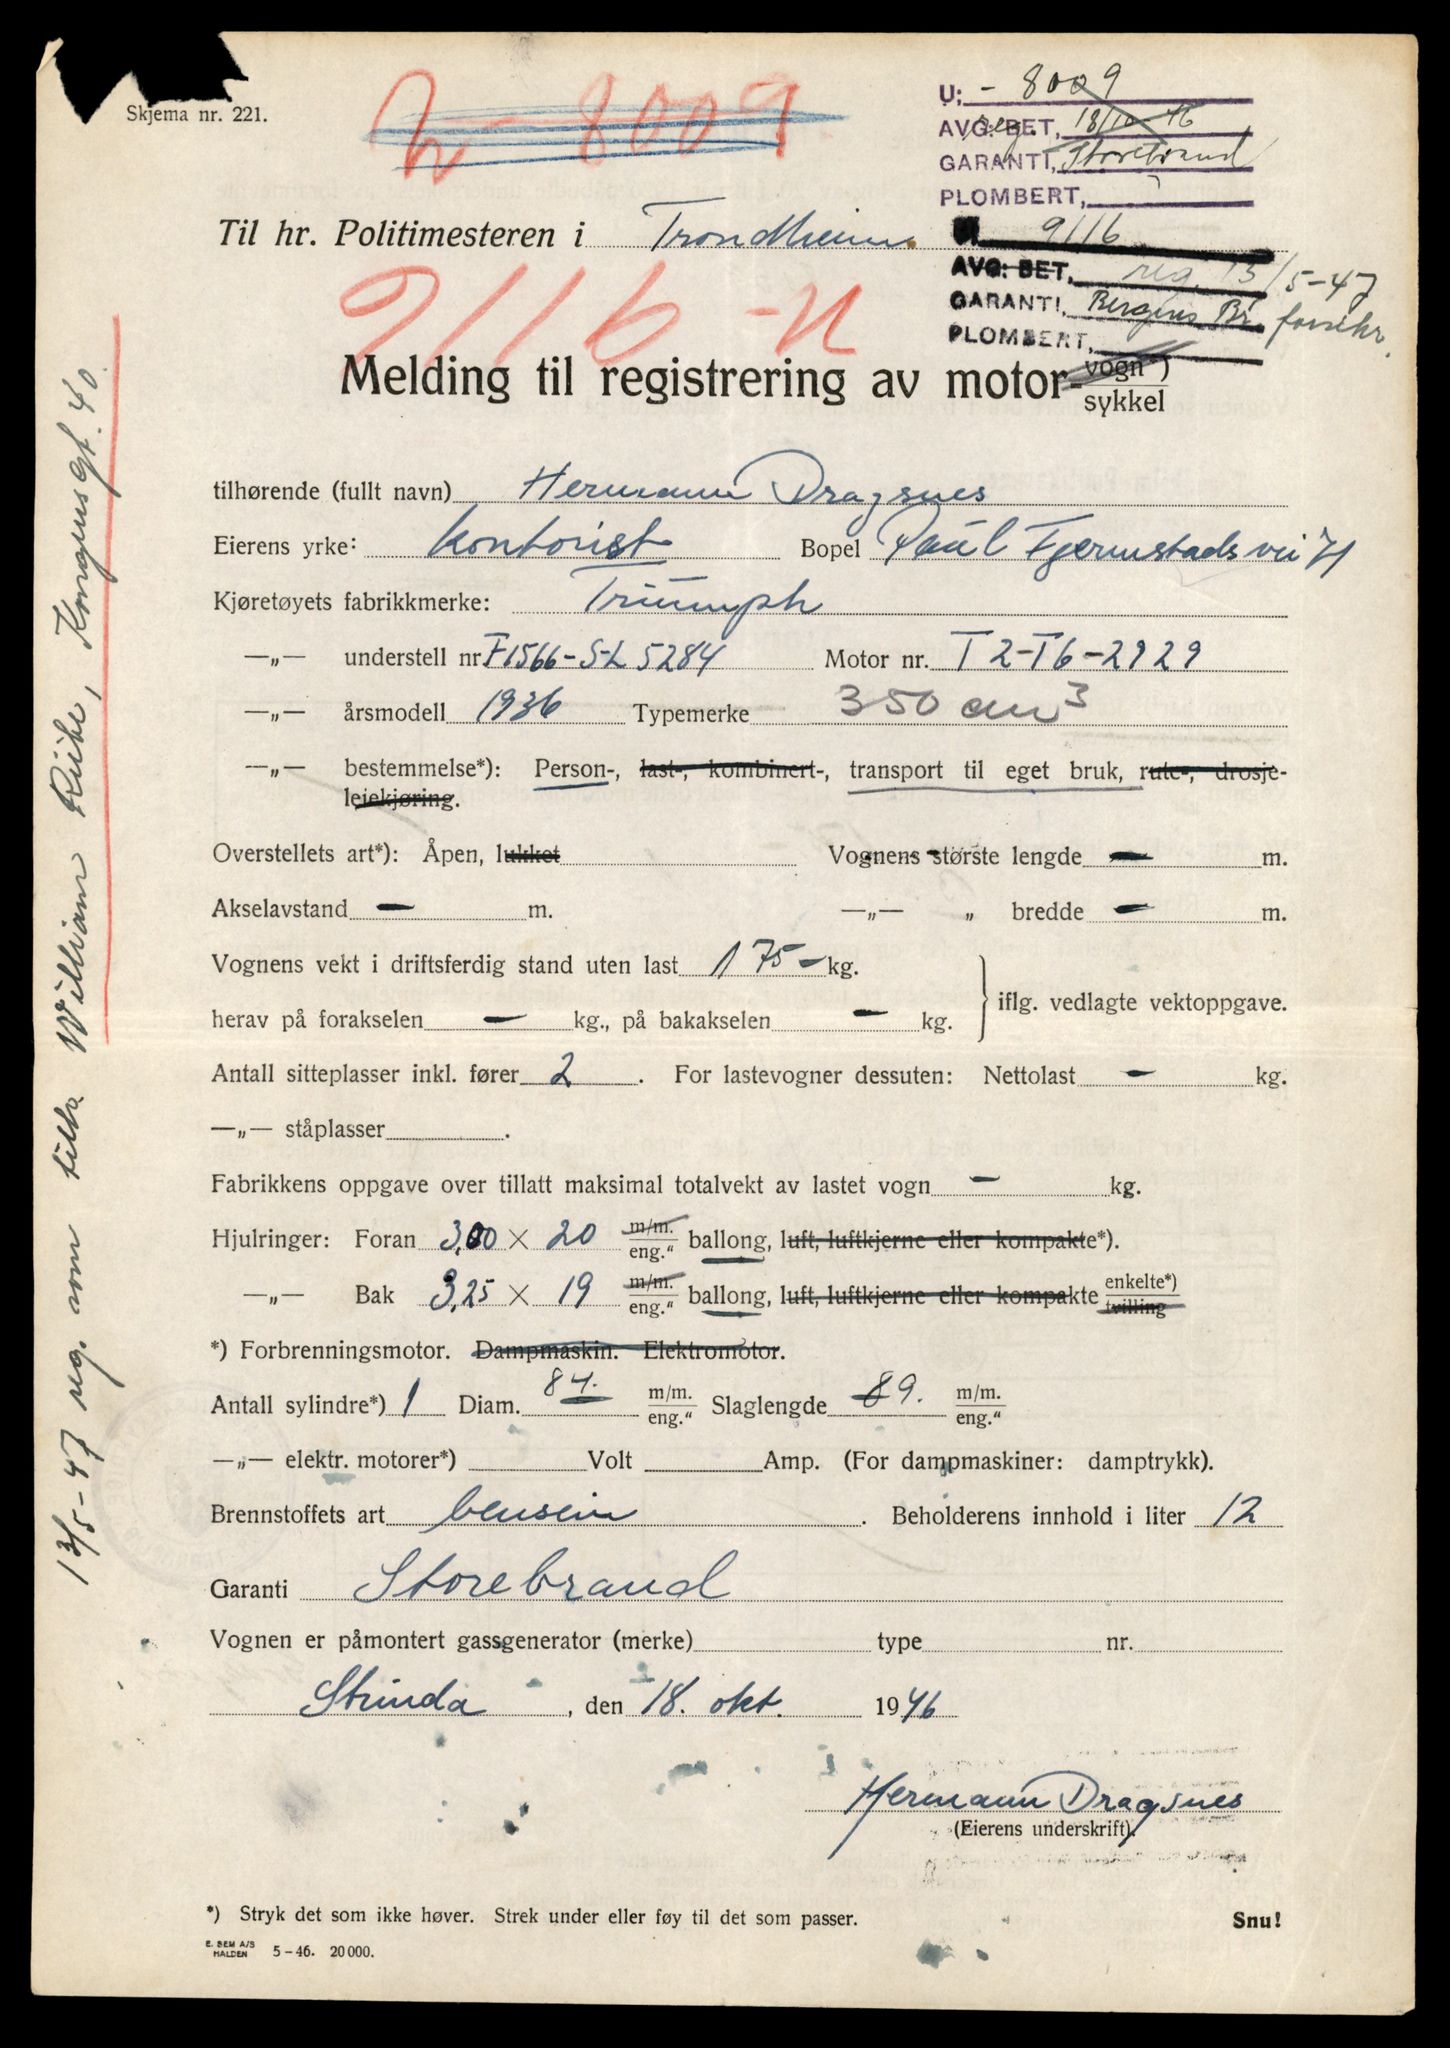 Skjema nr. 221.
U - 8009
U; - 8009
AVG: BET, reg. 18/10-46
GARANTI, Storebrand
PLOMBERT,
Til hr. Politimesteren i Trondheim.
U 9116
AVG: BET, reg. 13/5-47
GARANTI, Bergens Br. forsikr.
PLOMBERT,
9116 - U
Melding til registrering av motor- vogn*) sykkel
tilhørende (fullt navn) Hermann Dragsnes
Eierens yrke: kontorist Bopel Paul Fjermstads vei 71
Kjøretøyets fabrikkmerke: Triumph
—„— understell nr. F1566-S-L5284 Motor nr. T2-T6-2929
—„— årsmodell 1936 Typemerke 350 cm³
—„— bestemmelse*): Person-, last-, kombinert-, transport til eget bruk, rute-, drosje-
leiekjøring.
Overstellets art*): Åpen, lukket Vognens største lengde — m.
Akselavstand — m. —„— „ bredde — m.
Vognens vekt i driftsferdig stand uten last 175 — kg.
herav på forakselen — kg., på bakakselen — kg. iflg. vedlagte vektoppgave.
Antall sitteplasser inkl. fører 2. For lastevogner dessuten: Nettolast — kg.
—„— ståplasser .
Fabrikkens oppgave over tillatt maksimal totalvekt av lastet vogn — kg.
Hjulringer: Foran 3,00 × 20 m/m. eng.“ ballong, luft, luftkjerne eller kompakte*).
—„— Bak 3,25 × 19 m/m. eng.“ ballong, luft, luftkjerne eller kompakte enkelte*) tvilling
*) Forbrenningsmotor. Dampmaskin. Elektromotor.
Antall sylindre*) 1 Diam. 84. m/m. eng.“ Slaglengde 89. m/m. eng.“
—„— elektr. motorer*) Volt Amp. (For dampmaskiner: damptrykk).
Brennstoffets art bensin . Beholderens innhold i liter 12
Garanti Storebrand
Vognen er påmontert gassgenerator (merke) type nr.
Strinda, den 18. okt. 1946
Hermann Dragsnes
(Eierens underskrift).
*) Stryk det som ikke høver. Strek under eller føy til det som passer. Snu!
E. SEM A/S HALDEN 5-46. 20 000.
13/5-47 reg. som tilh. William Riibe, Kongensgt. 40.